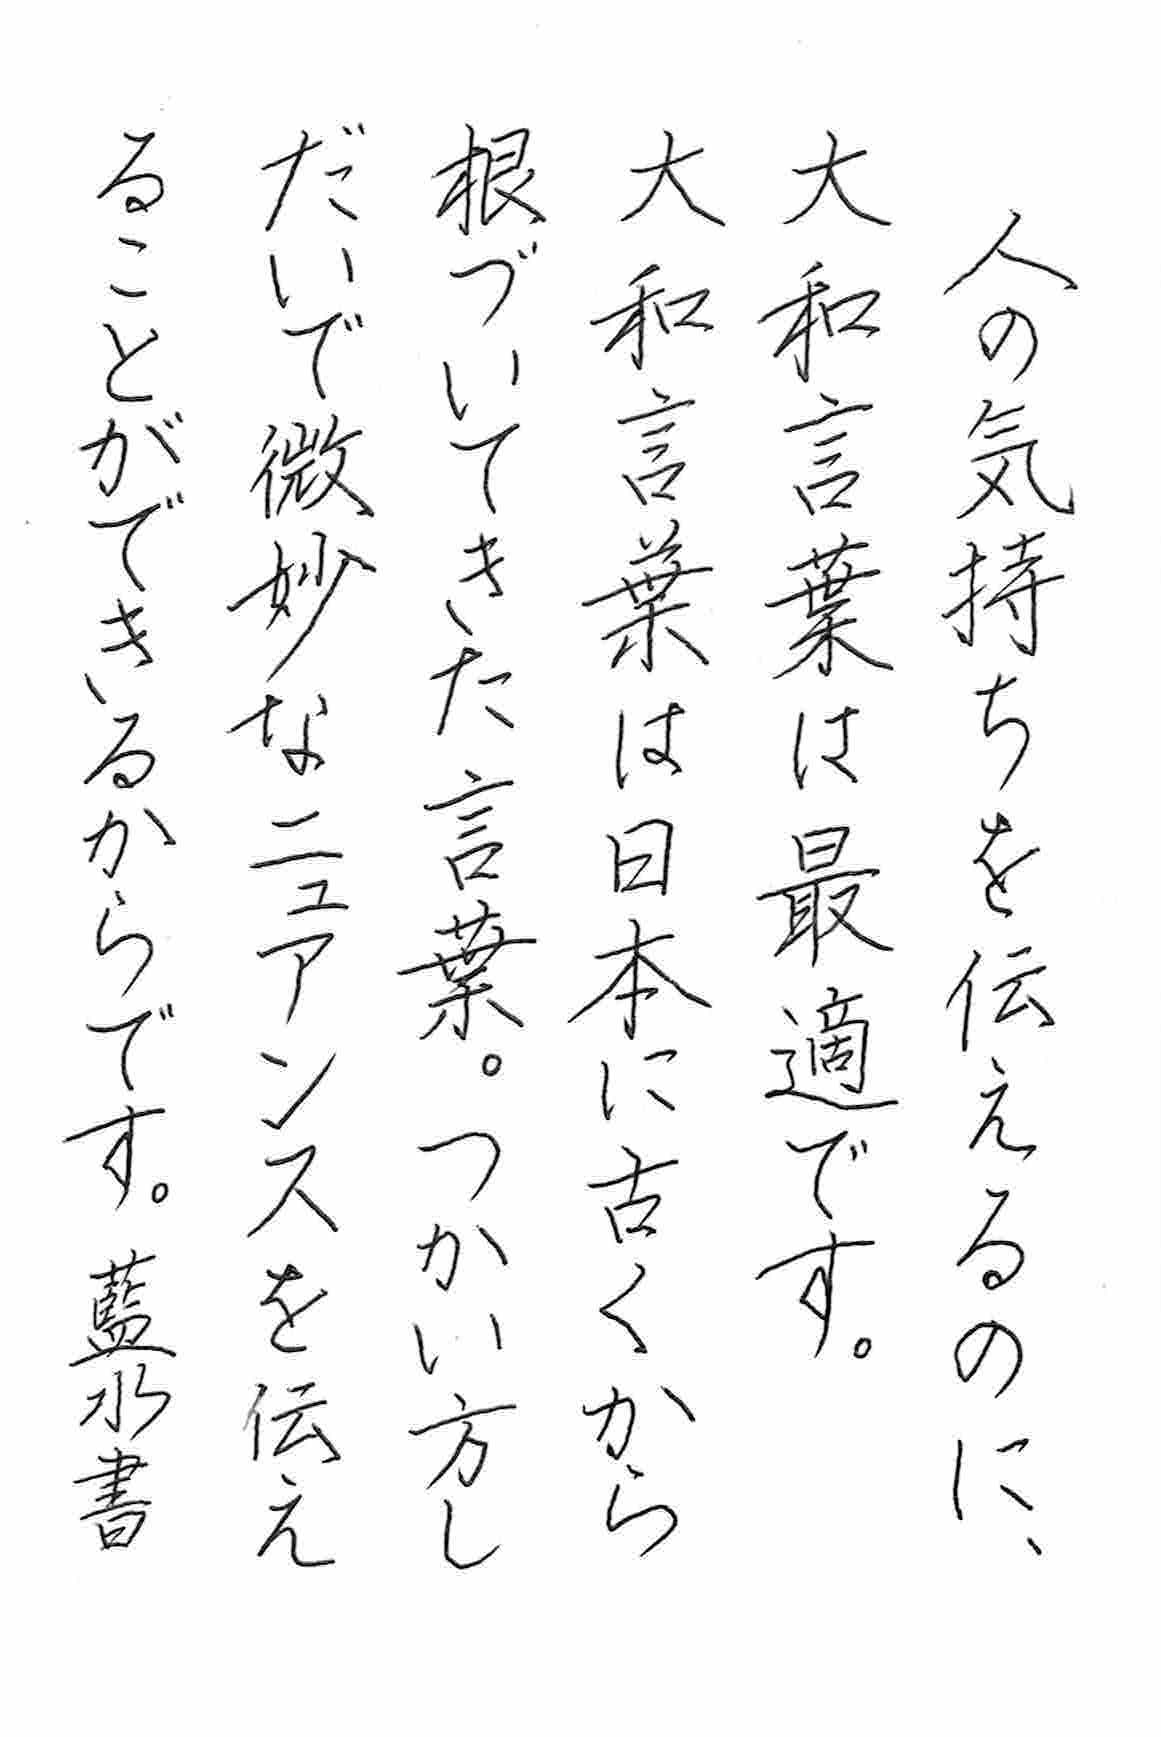 人の気持ちを伝えるのに、
大和言葉は最適です。
大和言葉は日本に古くから
根づいてきた言葉。つかい方し
だいで微妙なニュアンスを伝え
ることができるからです。藍水書